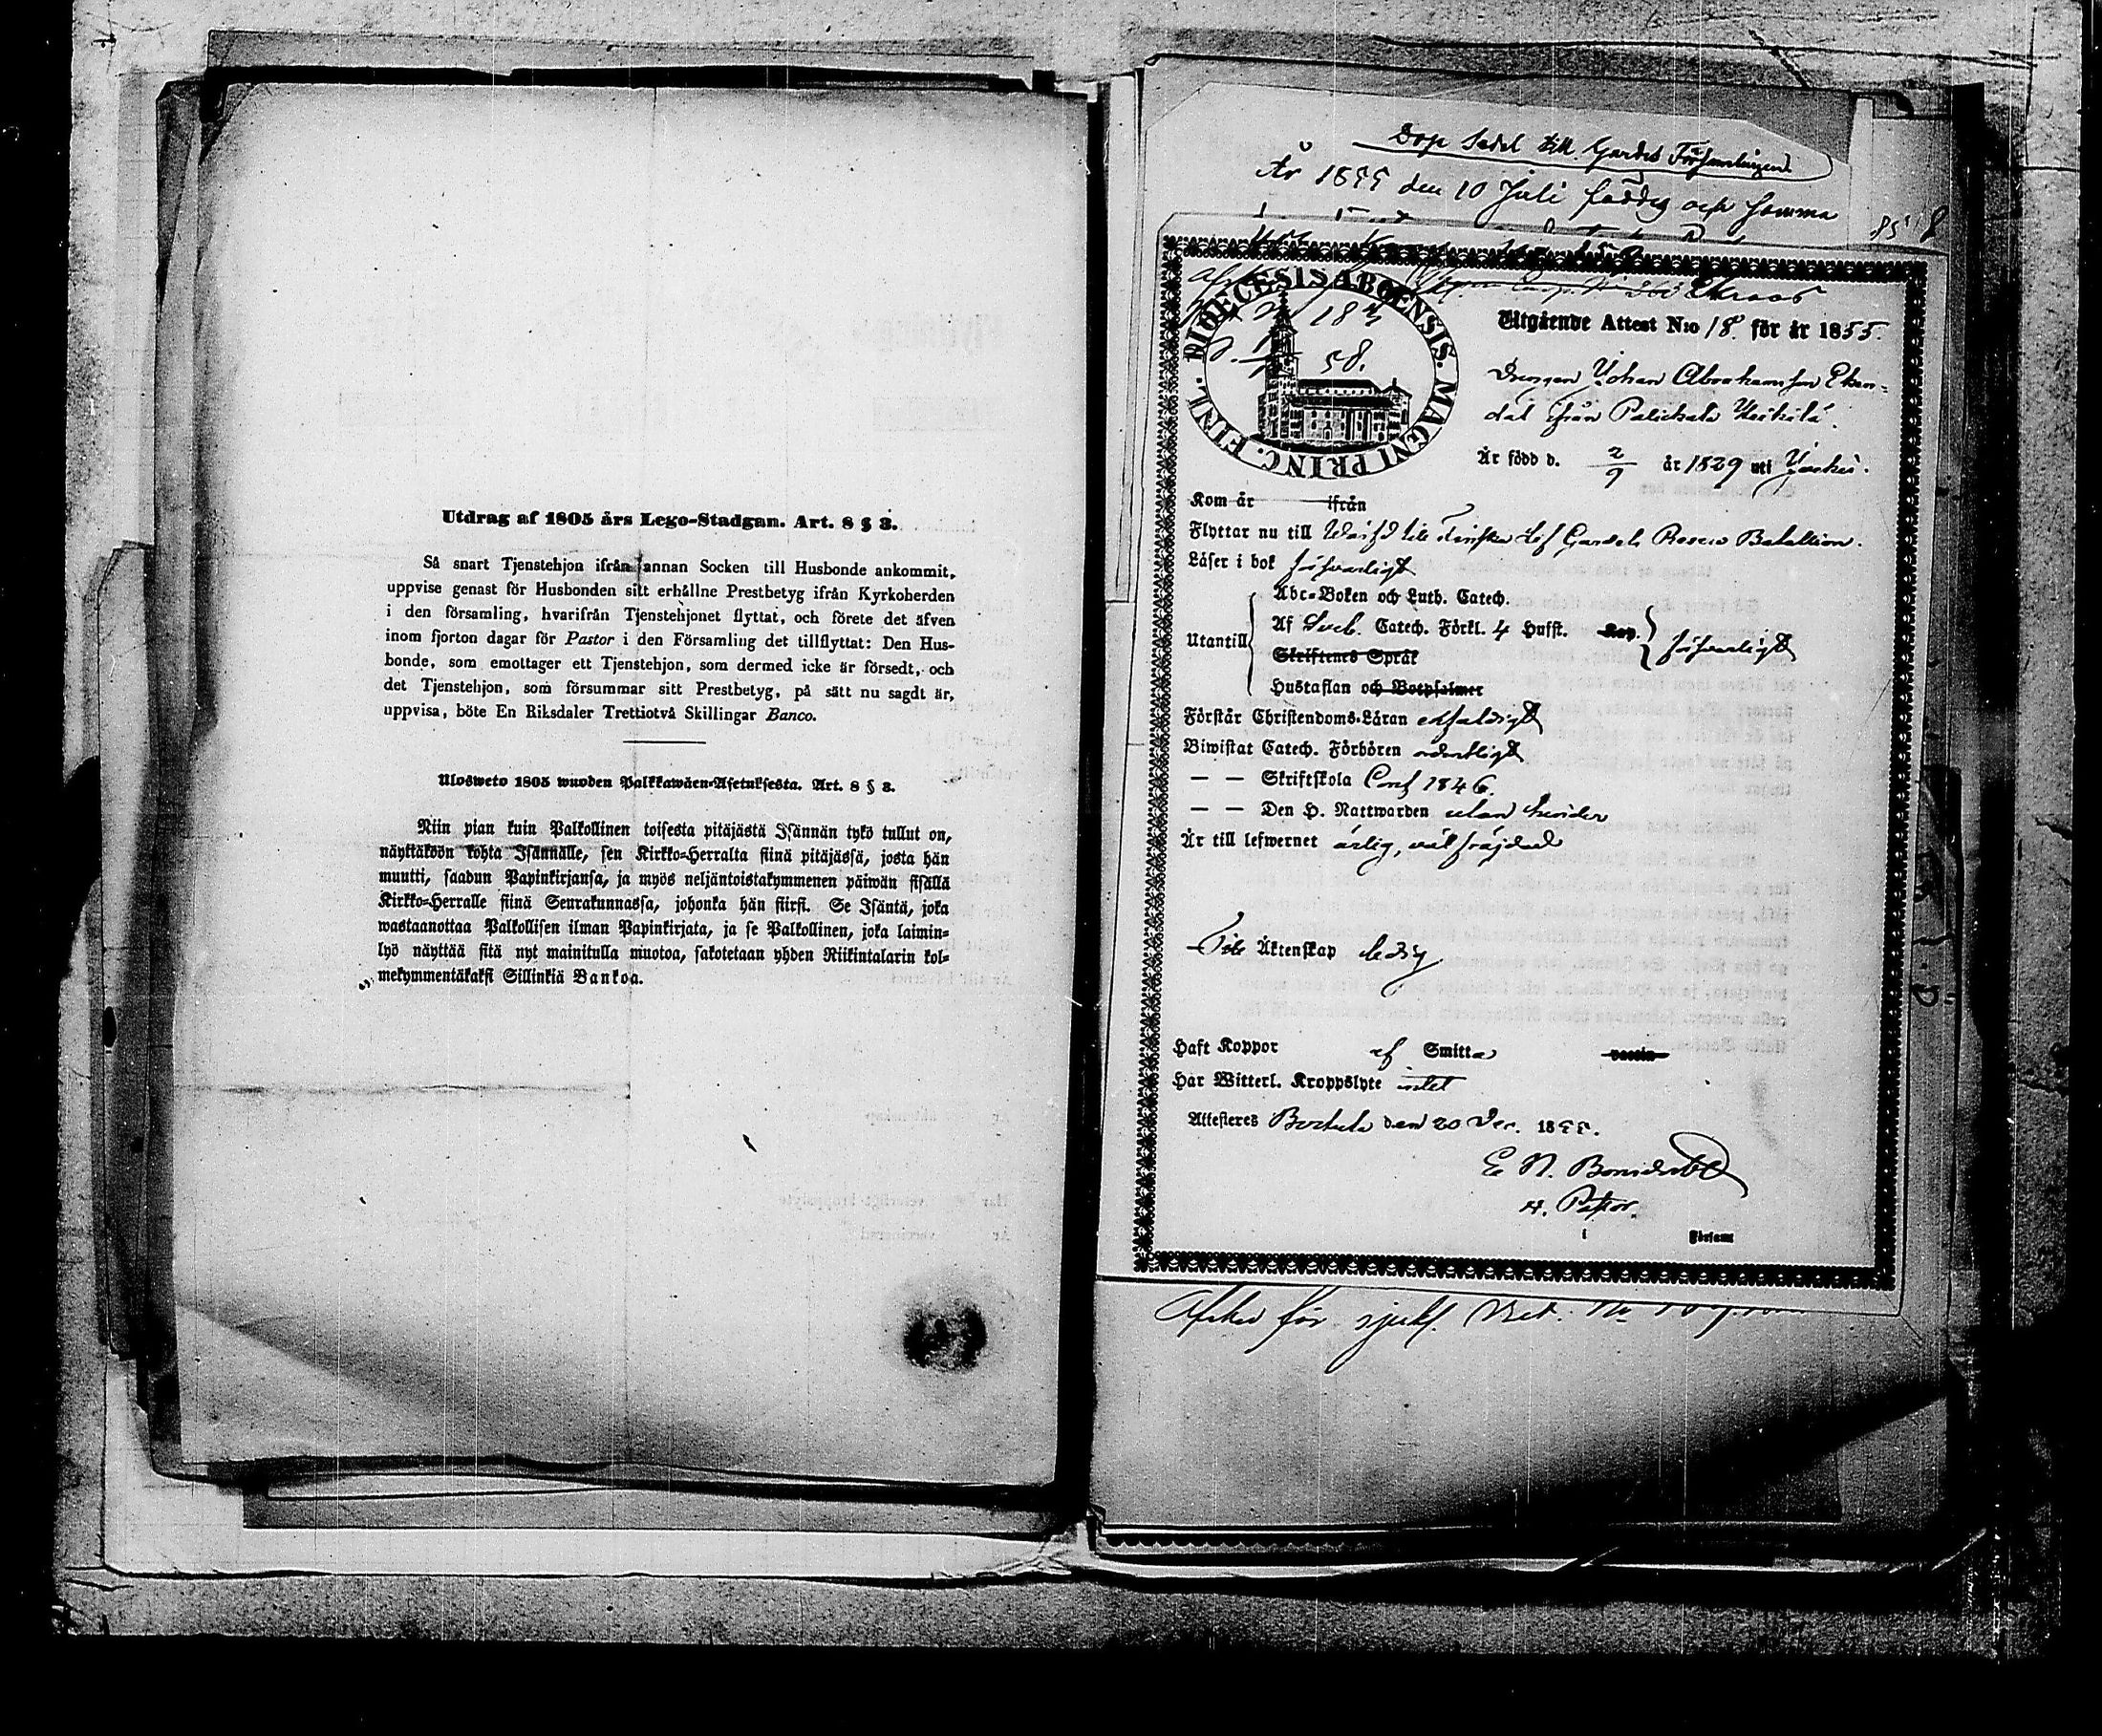 Utdrag af 1805 års Lego-Stadgan. Art. 8 § 3.
Så snart Tjenstehjon ifrån annan Socken till Husbonde ankommit,
uppvise genast för Husbonden sitt erhållne Prestbetyg ifrån Kyrkoherden
i den församling, hvarifrån Tjenstehjonet flyttat, och förete det äfven
inom fjorton dagar för Pastor i den Församling det tillflyttat: Den Hus-
bonde, som emottager ett Tjenstehjon, som dermed icke är försedt, och
det Tjenstehjon, som försummar sitt Prestbetyg, på sätt nu sagdt är,
uppvisa, böte En Riksdaler Trettiotvå Skillingar Banco.
Ulosweto 1805 wuoden Palkkawäen-Asetuksesta. Art. 8 § 3.
Niin pian kuin Palkollinen toisesta pitäjästä Isännän tykö tullut on,
näyttäköön kohta Isännälle, sen Kirkko-Herralta siinä pitäjässä, josta hän
muutti, saadun Papinkirjansa, ja myös neljäntoistakymmenen päiwän sisällä
Kirkko-Herralle siinä Seurakunnassa, johonka hän siirsi. Se Isäntä, joka
wastaanottaa Palkollisen ilman Papinkirjata, ja se Palkollinen, joka laimin-
lyö näyttää sitä nyt mainitulla muotoa, sakotetaan yhden Riikintalarin kol-
mekymmentäkaksi Sillinkiä Bankoa.
Dop Sedel till Gardes Församlingen
År 1855 den 10 Juli föddes och samma
85 8
DIŒCESIS ABOENSIS. MAGNI PRINC. FINL.
58.
Utgående Attest N:o 18 för år 1855.
Drengen Johan Abrahamsson Eken-
dal från Heikilä.
Är född d. 2/9 år 1829 uti
Kom år ifrån
Flyttar nu till Finska Lif Gardets Reserv Bataillon.
Läser i bok försvarligt
Abc-Boken och Luth. Catech.
Utantill Af Sveb. Catech. Förkl. 4 Hufst. Kap. försvarligt
Skriftenes Språk
Hustaflan och Botpsalmer
Förstår Christendoms-Läran enfaldigt
Biwistat Catech. Förhören ordentligt
— — Skriftskola Conf 1846.
— — Den H. Nattwarden utan hinder
Är till lefwernet ärlig, väl fräjdad
Till Äktenskap ledig
Haft Koppor af Smitta vaccin
Har Witterl. Kroppslyte intet
Attesteras den 20 Dec. 1855.
E. N.
Pastor.
i Församl
för sjukl. Bet. No